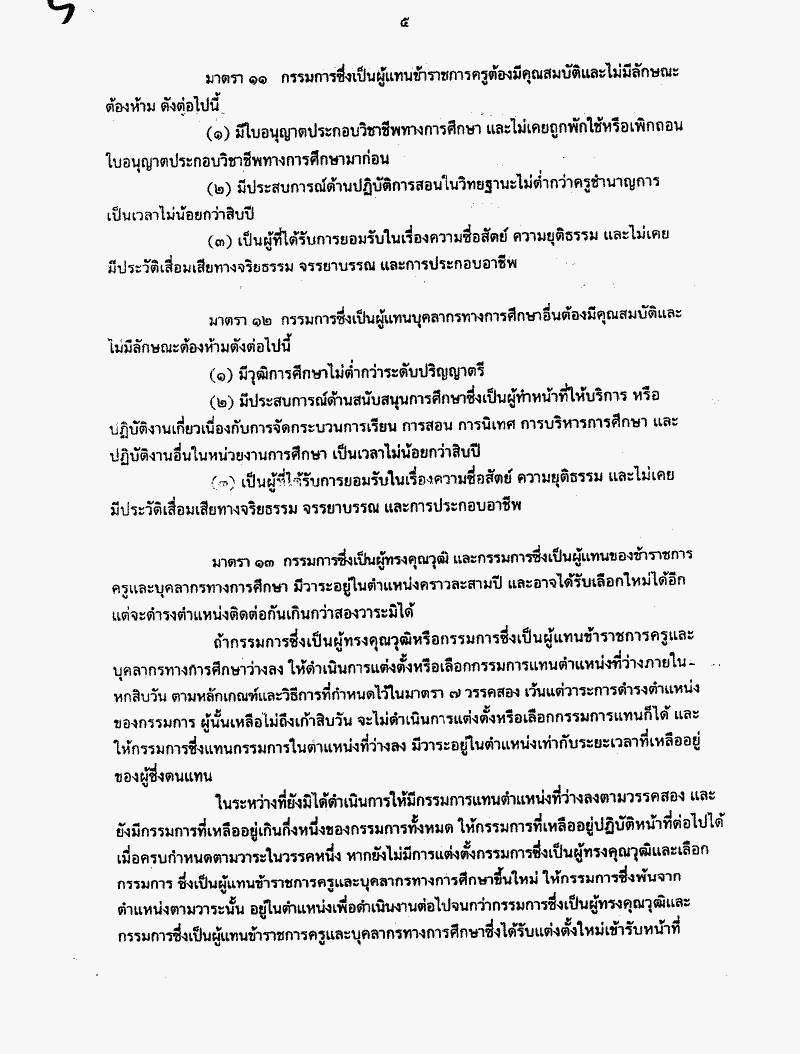 ๕
มาตรา ๑๑ กรรมการซึ่งเป็นผู้แทนข้าราชการครูต้องมีคุณสมบัติและไม่มีลักษณะ
ต้องห้าม ดังต่อไปนี้
(๑) มีใบอนุญาตประกอบวิชาชีพทางการศึกษา และไม่เคยถูกพักใช้หรือเพิกถอน
ใบอนุญาตประกอบวิชาชีพทางการศึกษามาก่อน
(๒) มีประสบการณ์ด้านปฏิบัติการสอนในวิทยฐานะไม่ต่ำกว่าครูชำนาญการ
เป็นเวลาไม่น้อยกว่าสิบปี
(๓) เป็นผู้ที่ได้รับการยอมรับในเรื่องความซื่อสัตย์ ความยุติธรรม และไม่เคย
มีประวัติเสื่อมเสียทางจริยธรรม จรรยาบรรณ และการประกอบอาชีพ
มาตรา ๑๒ กรรมการซึ่งเป็นผู้แทนบุคลากรทางการศึกษาอื่นต้องมีคุณสมบัติและ
ไม่มีลักษณะต้องห้ามดังต่อไปนี้
(๑) มีวุฒิการศึกษาไม่ต่ำกว่าระดับปริญญาตรี
(๒) มีประสบการณ์ด้านสนับสนุนการศึกษาซึ่งเป็นผู้ทำหน้าที่ให้บริการ หรือ
ปฏิบัติงานเกี่ยวเนื่องกับการจัดกระบวนการเรียน การสอน การนิเทศ การบริหารการศึกษา และ
ปฏิบัติงานอื่นในหน่วยงานการศึกษา เป็นเวลาไม่น้อยกว่าสิบปี
(๓) เป็นผู้ที่ได้รับการยอมรับในเรื่องความซื่อสัตย์ ความยุติธรรม และไม่เคย
มีประวัติเสื่อมเสียทางจริยธรรม จรรยาบรรณ และการประกอบอาชีพ
มาตรา ๑๓ กรรมการซึ่งเป็นผู้ทรงคุณวุฒิ และกรรมการซึ่งเป็นผู้แทนของข้าราชการ
ครูและบุคลากรทางการศึกษา มีวาระอยู่ในตำแหน่งคราวละสามปี และอาจได้รับเลือกใหม่ได้อีก
แต่จะดำรงตำแหน่งติดต่อกันเกินกว่าสองวาระมิได้
ถ้ากรรมการซึ่งเป็นผู้ทรงคุณวุฒิหรือกรรมการซึ่งเป็นผู้แทนข้าราชการครูและ
บุคลากรทางการศึกษาว่างลง ให้ดำเนินการแต่งตั้งหรือเลือกกรรมการแทนตำแหน่งที่ว่างภายใน
หกสิบวัน ตามหลักเกณฑ์และวิธีการที่กำหนดไว้ในมาตรา ๗ วรรคสอง เว้นแต่วาระการดำรงตำแหน่ง
ของกรรมการ ผู้นั้นเหลือไม่ถึงเก้าสิบวัน จะไม่ดำเนินการแต่งตั้งหรือเลือกกรรมการแทนก็ได้ และ
ให้กรรมการซึ่งแทนกรรมการในตำแหน่งที่ว่างลง มีวาระอยู่ในตำแหน่งเท่ากับระยะเวลาที่เหลืออยู่
ของผู้ซึ่งตนแทน
ในระหว่างที่ยังมิได้ดำเนินการให้มีกรรมการแทนตำแหน่งที่ว่างลงตามวรรคสอง และ
ยังมีกรรมการที่เหลืออยู่เกินกึ่งหนึ่งของกรรมการทั้งหมด ให้กรรมการที่เหลืออยู่ปฏิบัติหน้าที่ต่อไปได้
เมื่อครบกำหนดตามวาระในวรรคหนึ่ง หากยังไม่มีการแต่งตั้งกรรมการซึ่งเป็นผู้ทรงคุณวุฒิและเลือก
กรรมการ ซึ่งเป็นผู้แทนข้าราชการครูและบุคลากรทางการศึกษาขึ้นใหม่ ให้กรรมการซึ่งพ้นจาก
ตำแหน่งตามวาระนั้น อยู่ในตำแหน่งเพื่อดำเนินงานต่อไปจนกว่ากรรมการซึ่งเป็นผู้ทรงคุณวุฒิและ
กรรมการซึ่งเป็นผู้แทนข้าราชการครูและบุคลากรทางการศึกษาซึ่งได้รับแต่งตั้งใหม่เข้ารับหน้าที่